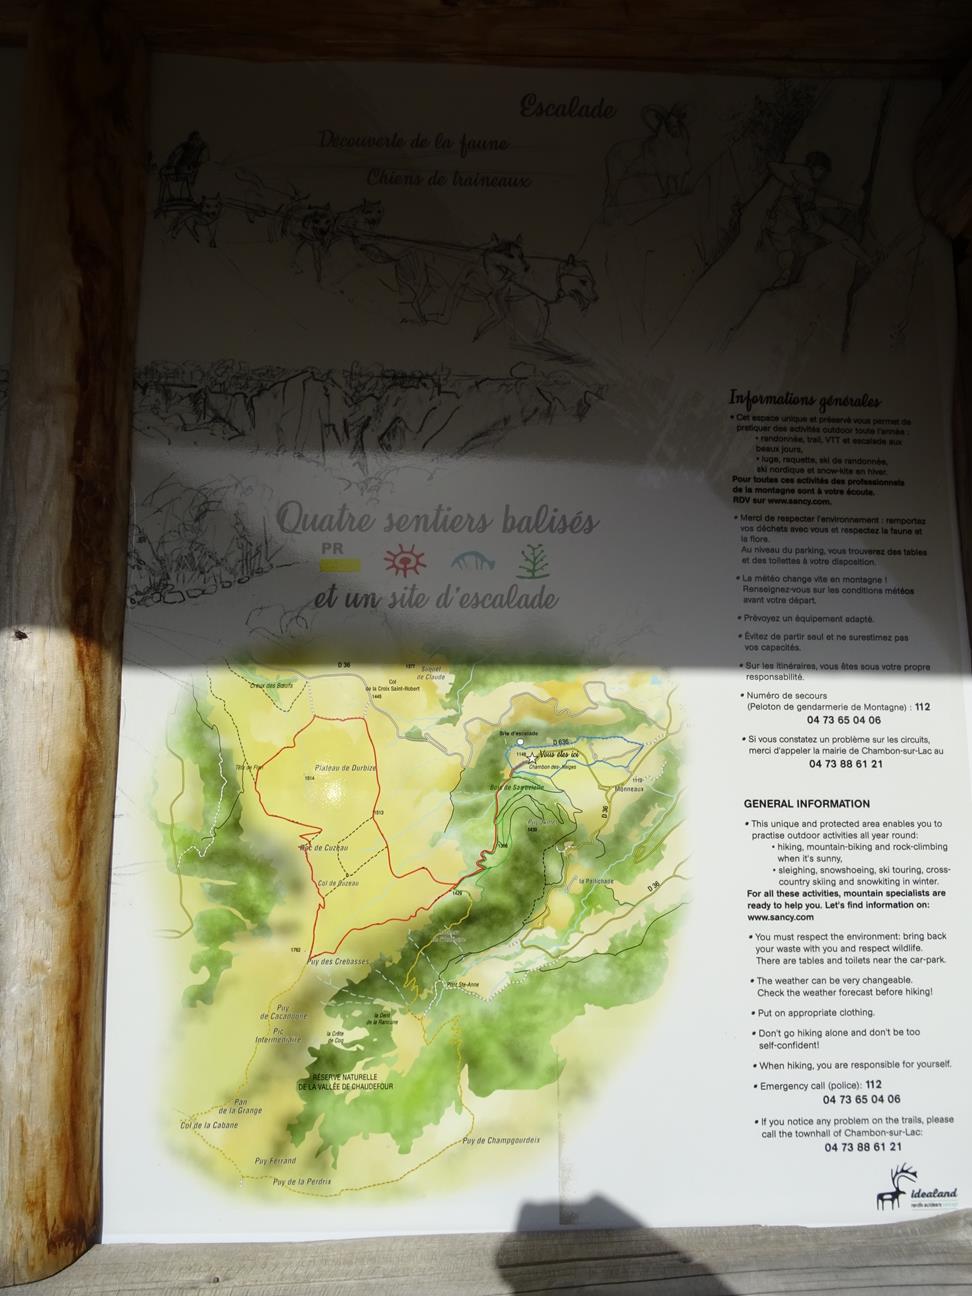 Escalade
Découverte de la faune
Chiens de traineaux
Quatre sentiers balisés
PR
et un site d'escalade
Informations générales
• Cet espace unique et préservé vous permet de
pratiquer des activités outdoor toute l'année :
• randonnée, trail, VTT et escalade aux
beaux jours,
• luge, raquette, ski de randonnée,
ski nordique et snow-kite en hiver.
Pour toutes ces activités des professionnels
de la montagne sont à votre écoute.
RDV sur www.sancy.com.
• Merci de respecter l'environnement : remportez
vos déchets avec vous et respectez la faune et
la flore.
Au niveau du parking, vous trouverez des tables
et des toilettes à votre disposition.
• La météo change vite en montagne !
Renseignez-vous sur les conditions météos
avant votre départ.
• Prévoyez un équipement adapté.
• Évitez de partir seul et ne surestimez pas
vos capacités.
• Sur les itinéraires, vous êtes sous votre propre
responsabilité.
• Numéro de secours
(Peloton de gendarmerie de Montagne) : 112
04 73 65 04 06
• Si vous constatez un problème sur les circuits,
merci d'appeler la mairie de Chambon-sur-Lac au
04 73 88 61 21
GENERAL INFORMATION
• This unique and protected area enables you to
practise outdoor activities all year round:
• hiking, mountain-biking and rock-climbing
when it's sunny,
• sleighing, snowshoeing, ski touring, cross-
country skiing and snowkiting in winter.
For all these activities, mountain specialists are
ready to help you. Let's find information on:
www.sancy.com
• You must respect the environment: bring back
your waste with you and respect wildlife.
There are tables and toilets near the car-park.
• The weather can be very changeable.
Check the weather forecast before hiking!
• Put on appropriate clothing.
• Don't go hiking alone and don't be too
self-confident!
• When hiking, you are responsible for yourself.
• Emergency call (police): 112
04 73 65 04 06
• If you notice any problem on the trails, please
call the townhall of Chambon-sur-Lac:
04 73 88 61 21
idealand
D 36
Creux des Bœufs
Col
de la Croix Saint-Robert
de Claude
Site d'escalade
D 636
Vous êtes ici
Chambon-des-Neiges
Plateau de Durbize
1614
Monneaux
D 36
Roc de Cuzeau
Col de Cuzeau
la Pailichade
D 36
Puy des Crebasses
Pont Ste-Anne
Puy
de Cacadogne
Pic
Intermédiaire
la Dent
de la Rancune
la Crête
de Coq
RÉSERVE NATURELLE
DE LA VALLÉE DE CHAUDEFOUR
Pan
de la Grange
Col de la Cabane
Puy de Champgourdeix
Puy Ferrand
Puy de la Perdrix